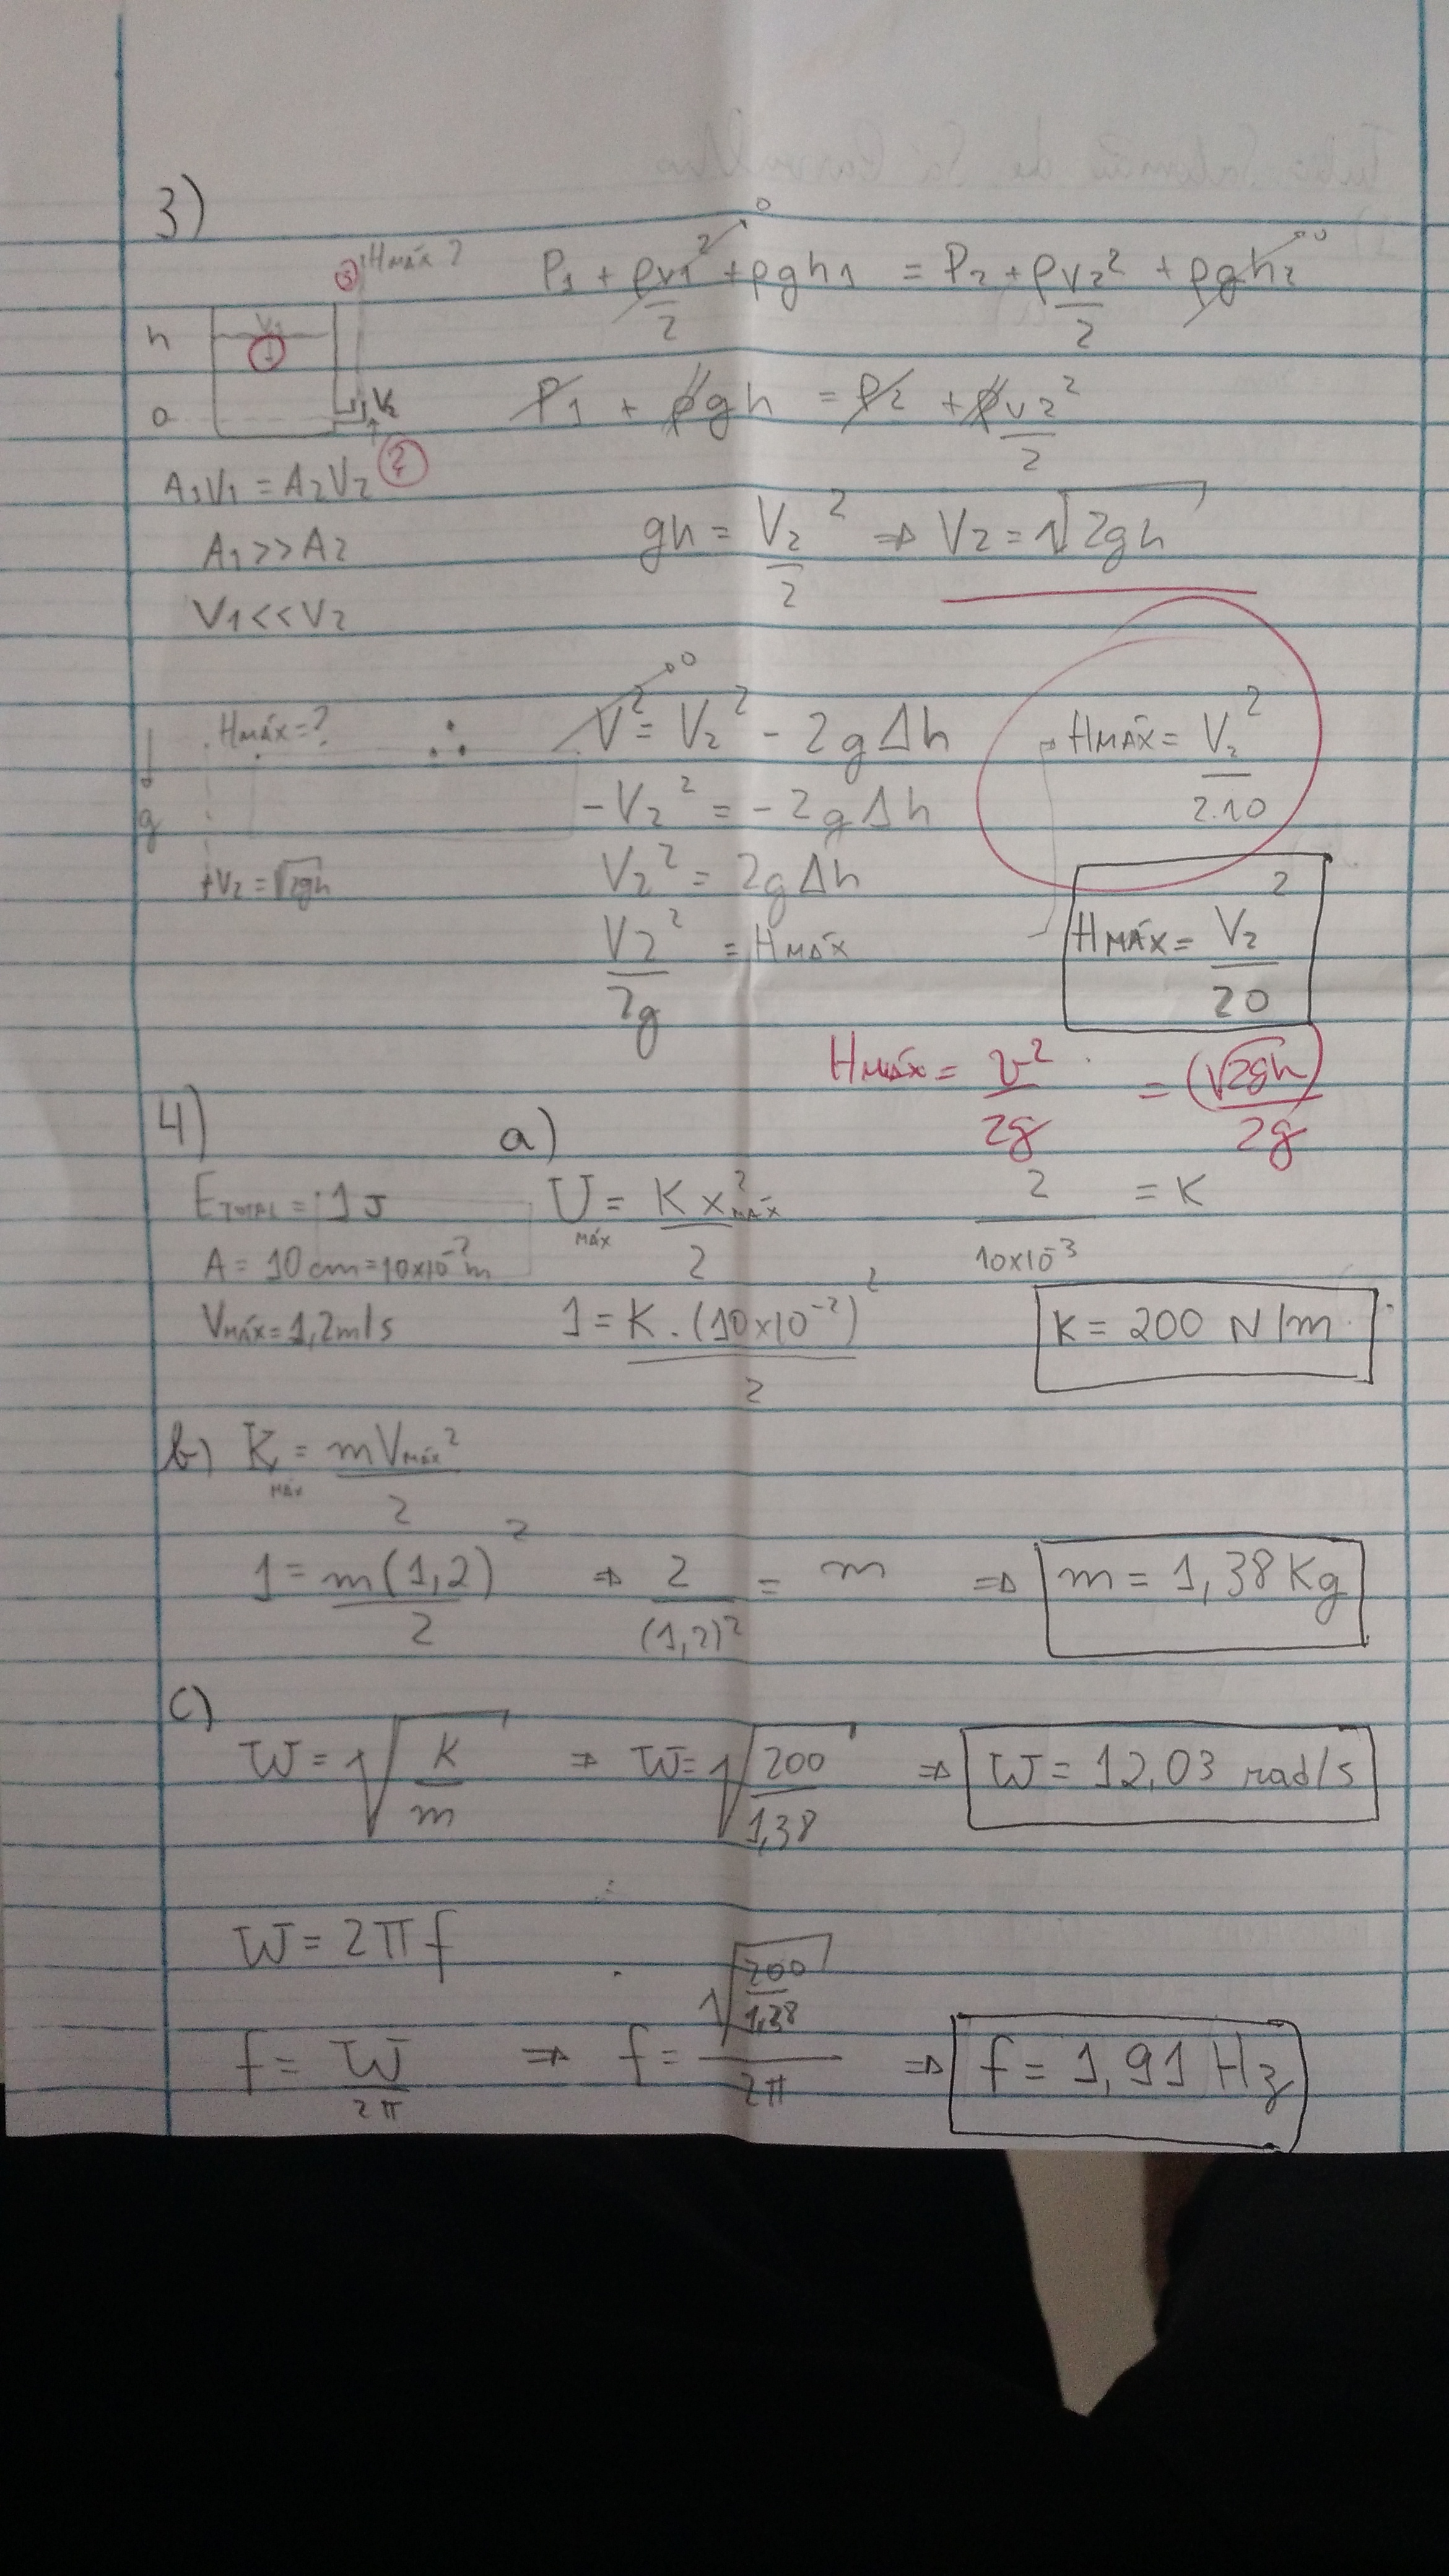 3)
③ HMÁX ?
P1 + ρv1²/2 → 0 + ρgh1 = P2 + ρv2²/2 + ρgh2 → 0
h
V1
①
0
V2
②
P1 + ρgh = P2 + ρv2²/2
A1V1 = A2V2
A1 >> A2
V1 << V2
gh = V2²/2 ⇒ V2 = √2gh
HMÁX = ?
g
+V2 = √2gh
∴ V² → 0 = V2² - 2gΔh
-V2² = -2gΔh
V2² = 2gΔh
V2²/2g = HMÁX
HMÁX = V2²/2.10
HMÁX = V2²/20
HMÁX = v²/2g = (√2gh)/2g
4)
ETOTAL = 1J
A = 10cm = 10x10⁻²m
VMÁX = 1,2m/s
a)
UMÁX = K x²MÁX/2
1 = K.(10x10⁻²)²/2
2/10x10⁻³ = K
K = 200 N/m
b) KMÁX = mVMÁX²/2
1 = m(1,2)²/2 ⇒ 2/(1,2)² = m ⇒ m = 1,38 Kg
c)
W = √K/m ⇒ W = √200/1,38 ⇒ W = 12,03 rad/s
W = 2πf
f = W/2π ⇒ f = √200/1,38/2π ⇒ f = 1,91 Hz